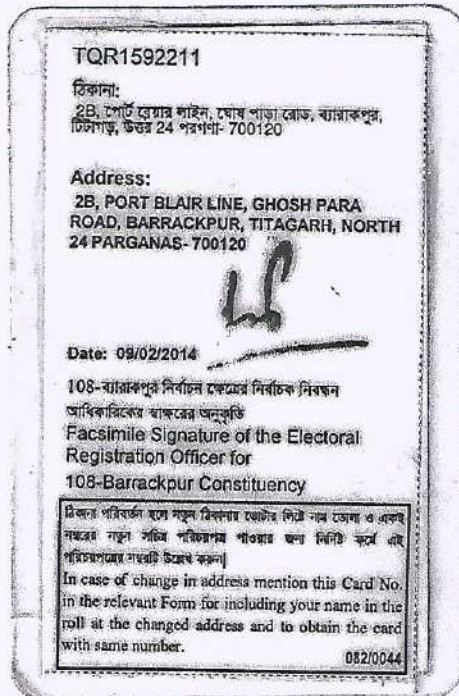 TQR1592211
ঠিকানা:
2B, পোর্ট ব্লেয়ার লাইন, ঘোষ পাড়া রোড, ব্যারাকপুর,
টিটাগড়, উত্তর 24 পরগণা- 700120
Address:
2B, PORT BLAIR LINE, GHOSH PARA
ROAD, BARRACKPUR, TITAGARH, NORTH
24 PARGANAS- 700120
Date: 09/02/2014
108-ব্যারাকপুর নির্বাচন ক্ষেত্রের নির্বাচক নিবন্ধন
আধিকারিকের স্বাক্ষরের অনুকৃতি
Facsimile Signature of the Electoral
Registration Officer for
108-Barrackpur Constituency
ঠিকানা পরিবর্তন হলে নতুন ঠিকানায় ভোটার লিস্টে নাম তোলা ও একই
নম্বরের নতুন সচিত্র পরিচয়পত্র পাওয়ার জন্য নির্দিষ্ট ফর্মে এই
পরিচয়পত্রের নম্বরটি উল্লেখ করুন|
In case of change in address mention this Card No.
in the relevant Form for including your name in the
roll at the changed address and to obtain the card
with same number.
082/0044